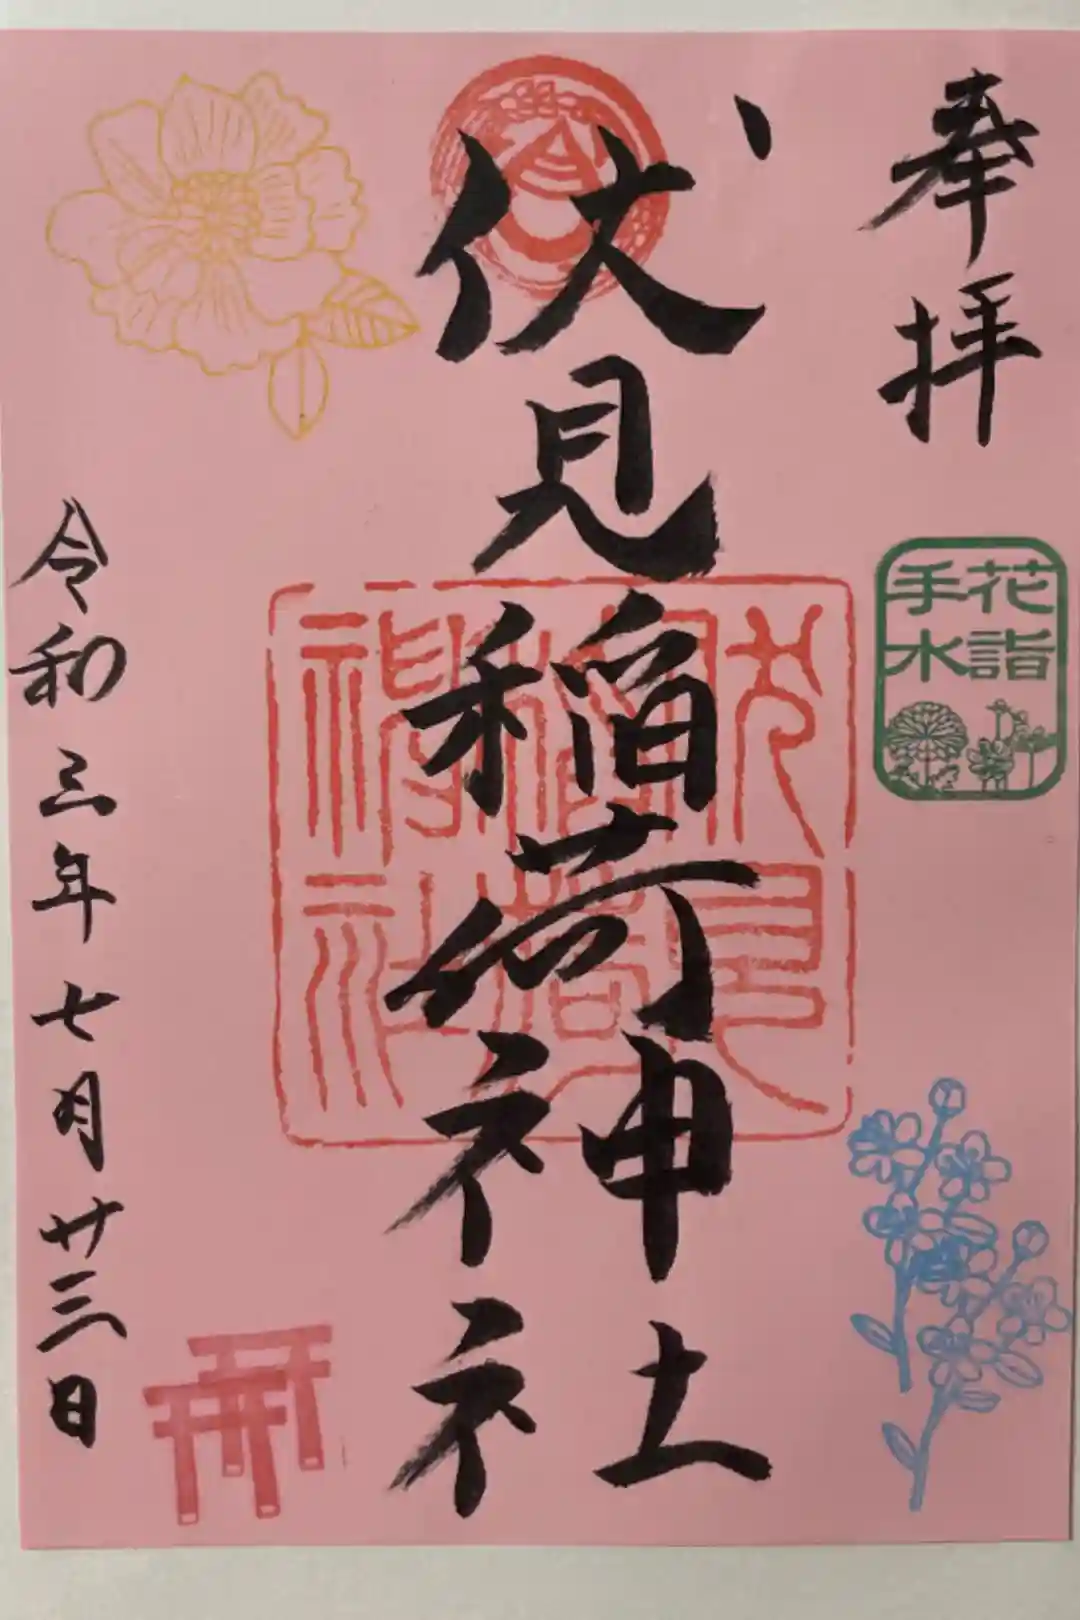 奉拝
花詣
手水
伏見稲荷神社
伏見
稲荷
神社
令和三年七月廿三日